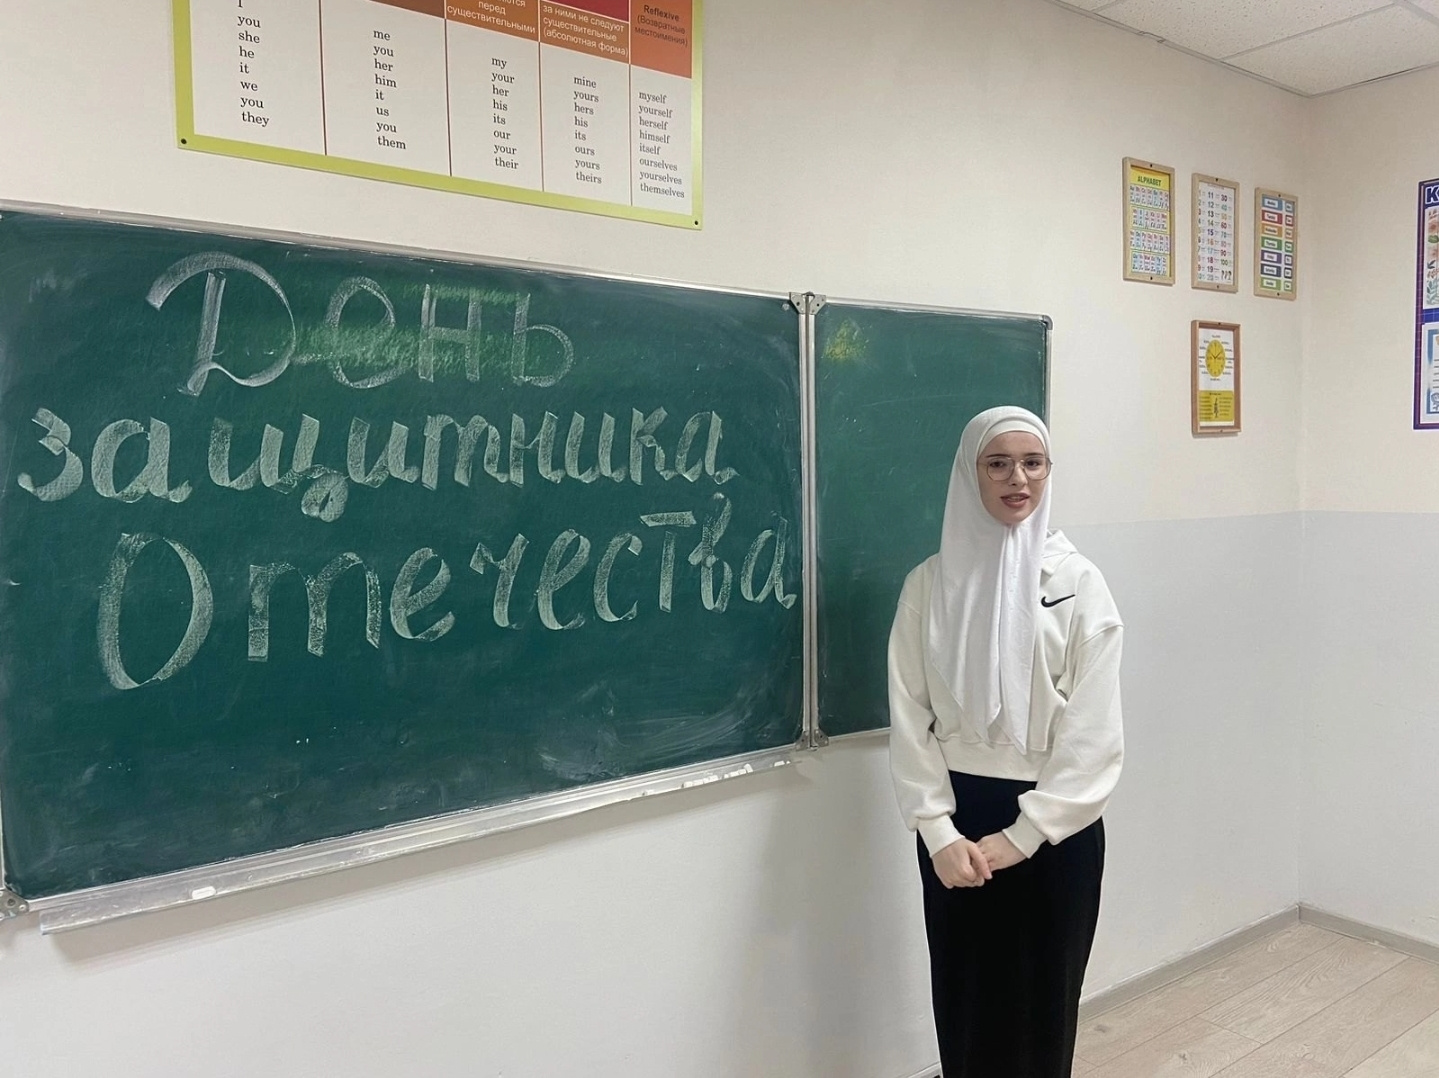 перед
существительными
за ними не следуют
существительные
(абсолютная форма)
Reflexive
(Возвратные
местоимения)
I
you
she
he
it
we
you
they
me
you
her
him
it
us
you
them
my
your
her
his
its
our
your
their
mine
yours
hers
his
its
ours
yours
theirs
myself
yourself
herself
himself
itself
ourselves
yourselves
themselves
День
защитника
Отечества
ALPHABET